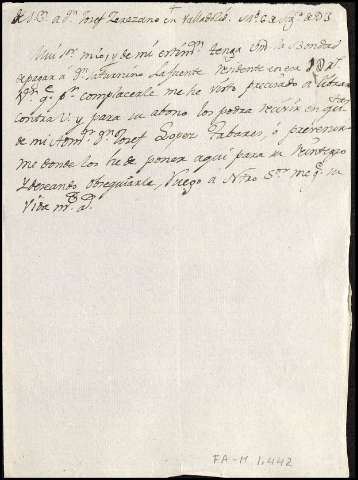 de V.C. a Dn. Josef Zerezano en Valladolid. Md. 6 de de 813
Mui Sr. mio, y de mi estimon. tenga Vmd. la Bondad
de pagar a Dn. Saturnino Lafuente Residente en esa
qe. pr. complacerle me he visto precisado a librar
contra V. y para su abono los podra recivir en
de mi Dn. Josef Lopez Tabares, o prevenir
me donde los he de poner aqui para su Reintegro
y deseando obsequiarle, Ruego a Ntro Sor. me ge. su
Vida ms. as.
FA-M 1.442